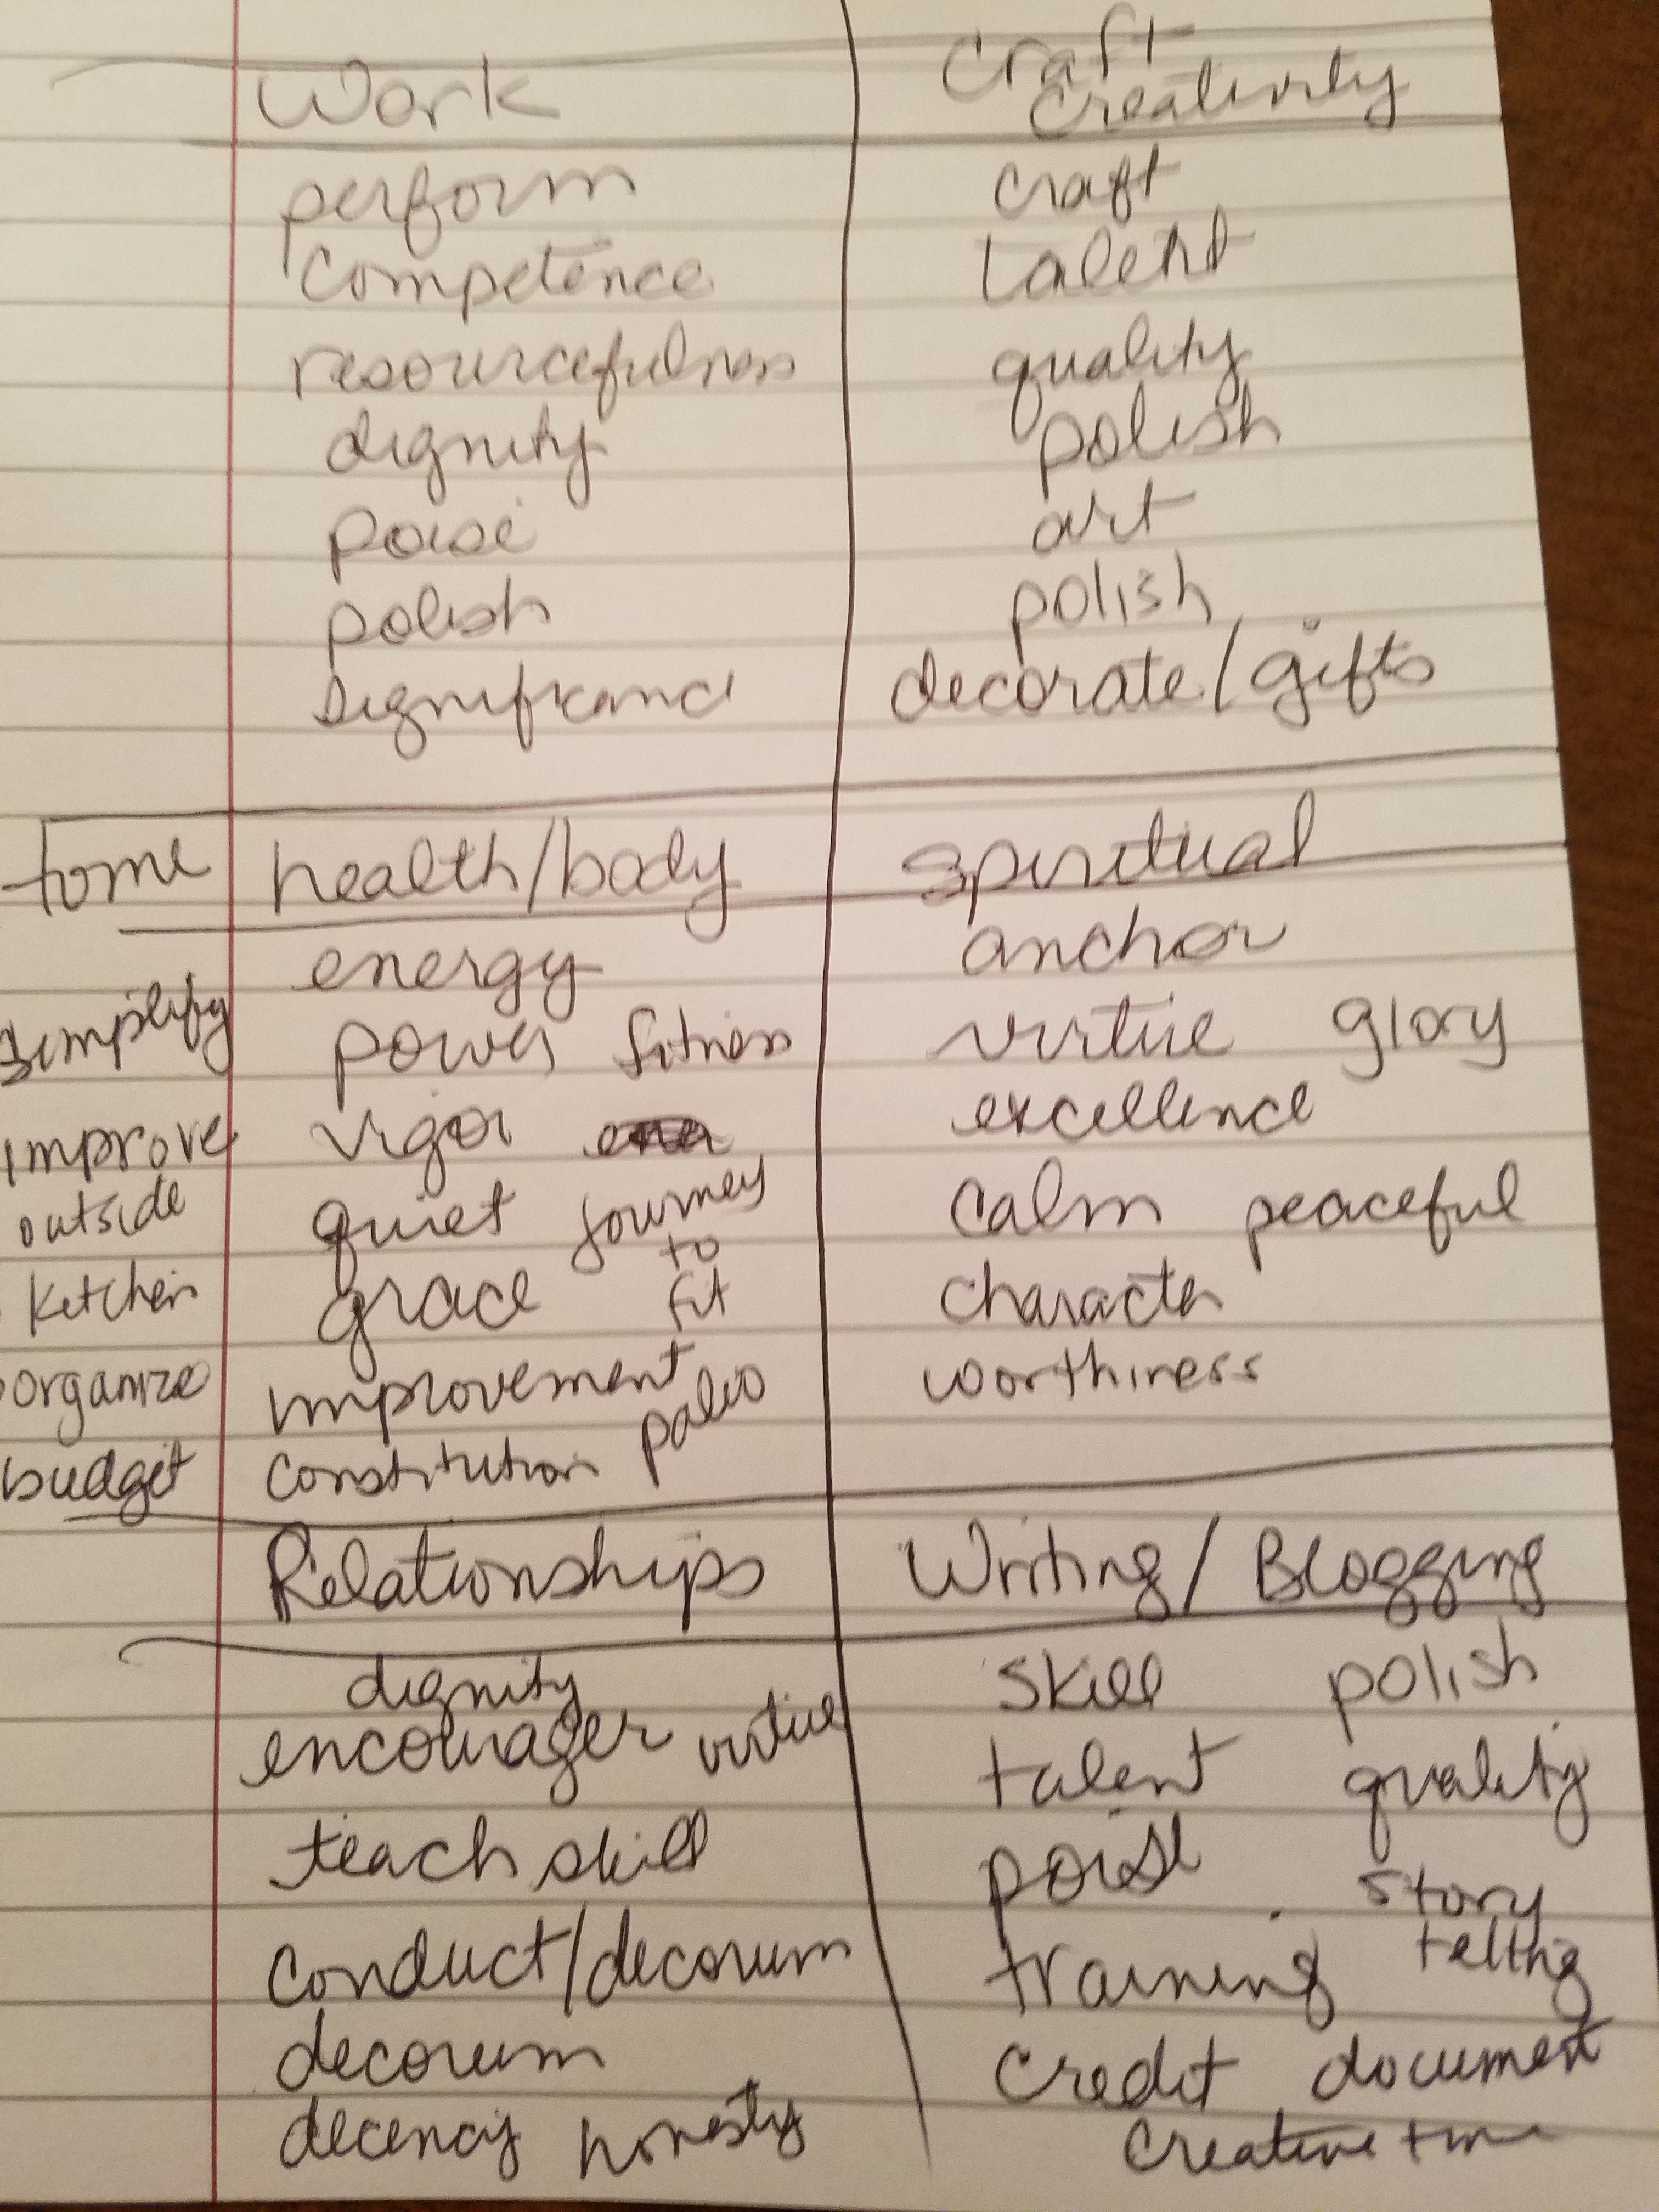 Work
perform
competence
resourcefulness
dignity
poise
polish
significance
Craft
creativity
craft
talent
quality
polish
art
polish
decorate/gifts
simplify
improve
outside
kitchen
organize
budget
health/body
energy
power fitness
vigor
quiet journey
to
grace fit
improvement
constitution paleo
spiritual
anchor
virtue glory
excellence
calm peaceful
character
worthiness
Relationships
dignity
encourager virtue
teach skill
conduct/decorum
decorum
decency honesty
Writing/Blogging
skill polish
talent quality
poise story
training telling
credit document
creative time